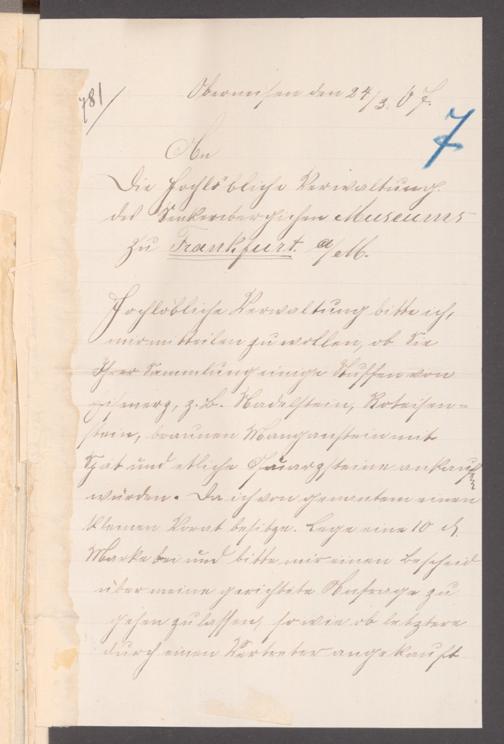 781/
Oberneisen den 24/3. 07.
7
An
Die hochlöbliche Verwaltung.
des Senkenbergischen Museums
zu Frankfurt. a/M.
Hochlöbliche Verwaltung bitte ich,
mir mitteilen zu wollen, ob Sie
Ihrer Sammlung einige Stuffen von
Eisenerz, z. B. Nadelstein, Roteisen=
stein, braunen Manganstein mit
Spat und etliche Quarzsteine ankauf
würden. Da ich von genantem einen
kleinen Vorat besitze. Lege eine 10 d.
Marke bei und bitte mir einen Bescheid
über meine gerichtete Anfrage zu
gehen zu lassen, sowie ob letztere
durch einen Vertreter angekauft